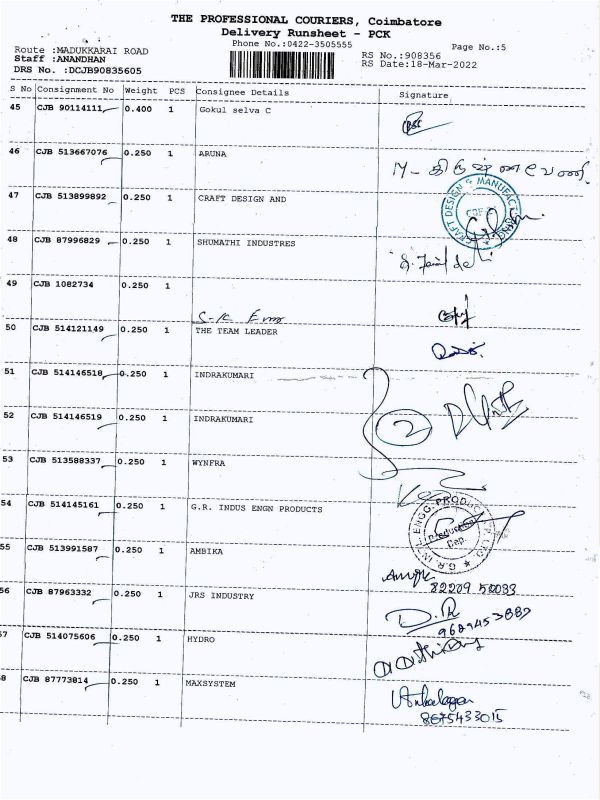 THE PROFESSIONAL COURIERS, Coimbatore
Delivery Runsheet - PCK
Phone No.:0422-3505555
Page No.:5
Route :MADUKKARAI ROAD
Staff :ANANDHAN
DRS No. :DCJB90835605
RS No.:908356
RS Date:18-Mar-2022
S No Consignment No Weight PCS Consignee Details Signature
45 CJB 90114111 0.400 1 Gokul selva C
46 CJB 513667076 0.250 1 ARUNA
47 CJB 513899892 0.250 1 CRAFT DESIGN AND
CRAFT DESIGN & MANUFACTURING
48 CJB 87996829 0.250 1 SHUMATHI INDUSTRES
49 CJB 1082734 0.250 1
50 CJB 514121149 0.250 1 THE TEAM LEADER
51 CJB 514146518 0.250 1 INDRAKUMARI
52 CJB 514146519 0.250 1 INDRAKUMARI
2
53 CJB 513588337 0.250 1 WYNFRA
54 CJB 514145161 0.250 1 G.R. INDUS ENGN PRODUCTS
55 CJB 513991587 0.250 1 AMBIKA
56 CJB 87963332 0.250 1 JRS INDUSTRY
57 CJB 514075606 0.250 1 HYDRO
58 CJB 87773814 0.250 1 MAXSYSTEM
8675433015